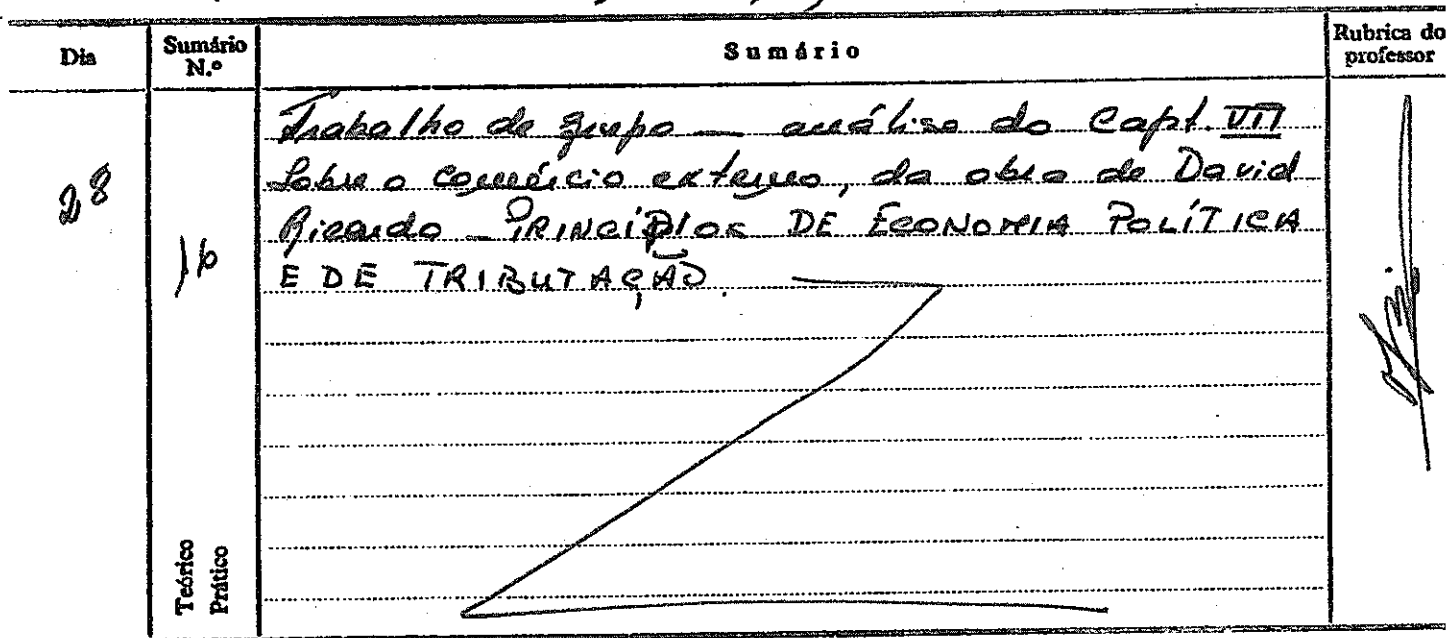 Dia
Sumário N.º
Sumário
Rubrica do professor
28
Trabalho de grupo — análise do Capt. VII
Sobre o comércio externo, da obra de David
Ricardo — PRINCÍPIOS DE ECONOMIA POLÍTICA
E DE TRIBUTAÇÃO.
Teórico
Prático